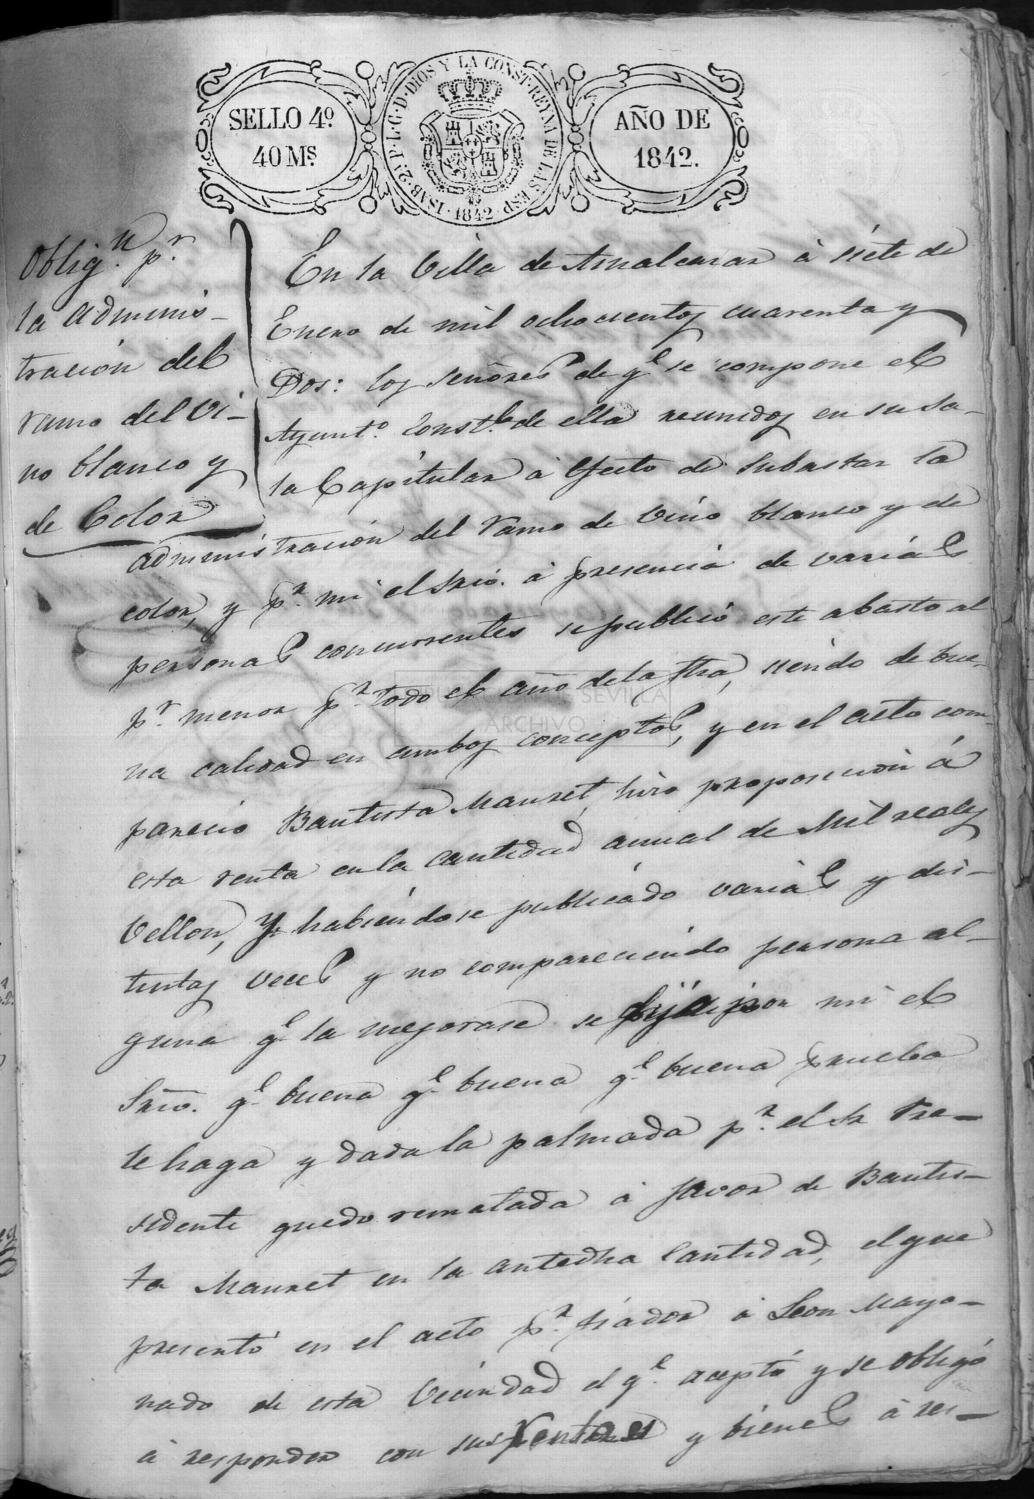 SELLO 4º
40 Ms
ISAB. 2ª P. L. G. D. DIOS Y LA CONST. REYNA DE LAS ESP.
1842
AÑO DE
1842.
Oblign. pr
la adminis-
tración del
ramo del Vi-
no blanco y
de Color
En la Villa de Aznalcazar à siete de
Enero de mil ochocientos cuarenta y
Dos: los señores de qe se compone el
Ayunto. Constl. de ella reunidos en su Sa-
la Capitular à efecto de Subastar la
administración del Ramo de Vino blanco y de
color, y pr. mi el Srio. à presencia de varias
personas concurrentes se publicó este abasto al
pr. menor pa. todo el año de la fha, siendo de bue-
na calidad en ambos conceptos, y en el acto com
pareció Bautista Mauret, hizo proposición á
esta renta en la cantidad anual de Mil reales
Vellon, Y habiéndose publicado varias y dis-
tintas veces y no compareciendo persona al-
guna qe la mejorase se fija por mi el
Srio. qe buena qe buena qe buena prueba
le haga y dada la palmada pr. el Sr Pre-
sidente quedo rematada à favor de Bautis-
ta Mauret en la antedha Cantidad, el que
presentó en el acto pr. fiador à Leon Mayo-
rado de esta Vecindad el qe. aceptó y se obligó
à responder con sus rentas y bienes à res-
DIPUTACIÓN DE SEVILLA
ARCHIVO